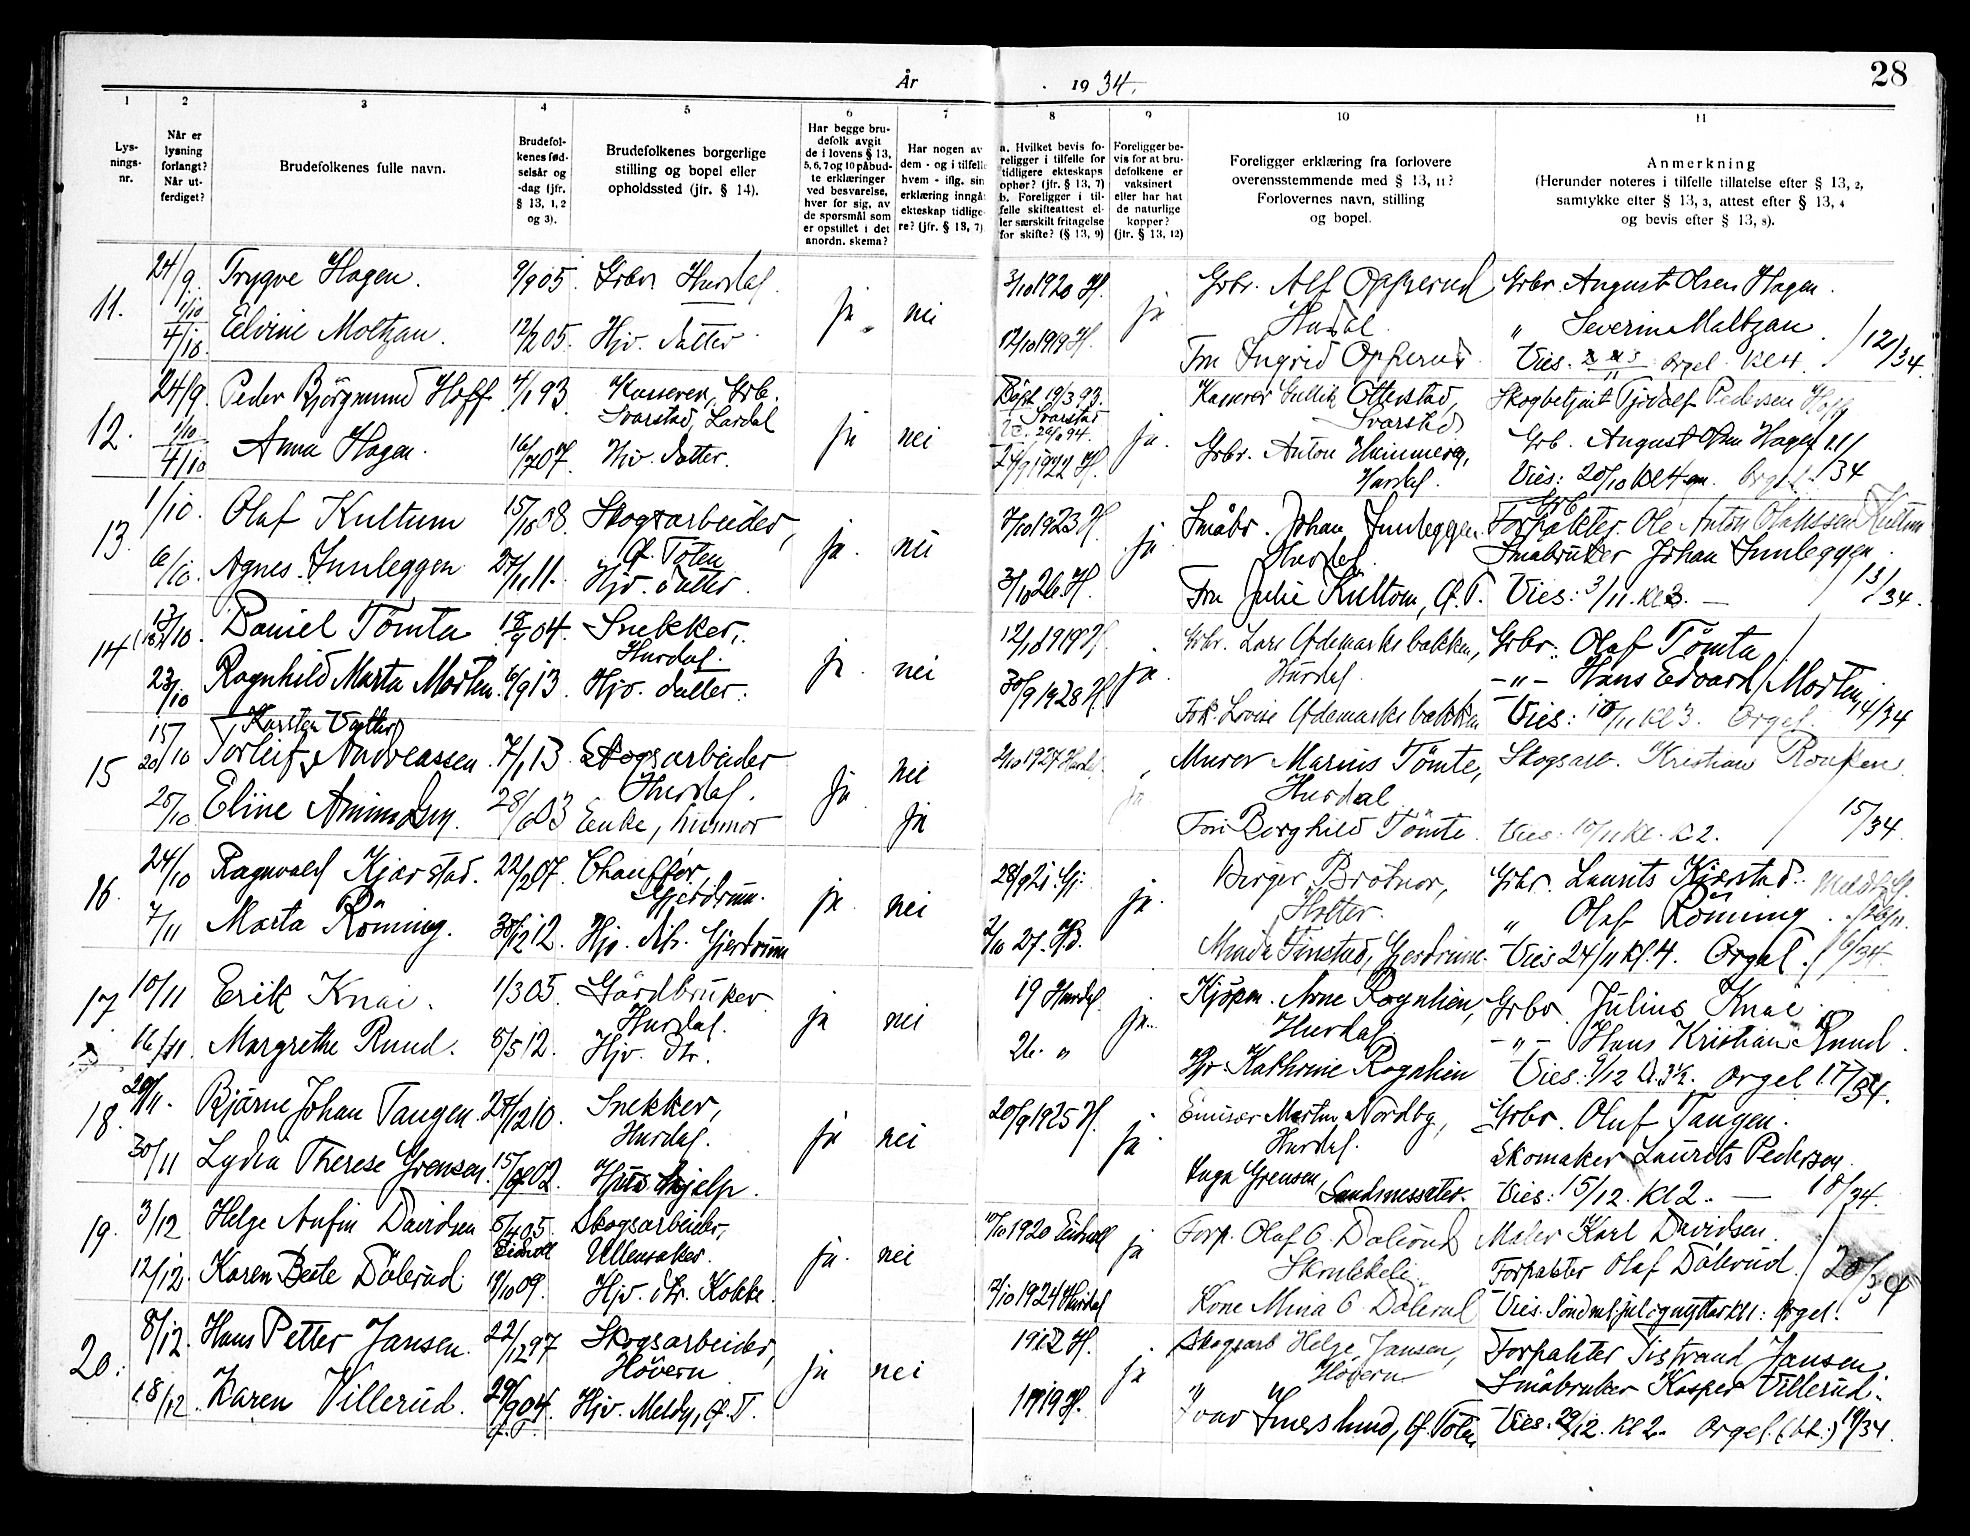 28
År 1934.
1 2 3 4 5 6 7 8 9 10 11
Lys-
nings-
nr.
Når er
lysning
forlangt?
Når ut-
ferdiget?
Brudefolkenes fulle navn.
Brudefol-
kenes fød-
selsår og
-dag (jfr.
§ 13, 1, 2
og 3).
Brudefolkenes borgerlige
stilling og bopel eller
opholdssted (jfr. § 14).
Har begge bru-
defolk avgit
de i lovens § 13,
5, 6, 7 og 10 påbud-
te erklæringer
ved besvarelse,
hver for sig, av
de spørsmål som
er opstillet i det
anordn. skema?
Har nogen av
dem - og i tilfelle
hvem - iflg. sin
erklæring inngåt
ekteskap tidlige-
re? (jfr. § 13, 7)
a. Hvilket bevis fo-
religger i tilfelle for
tidligere ekteskaps
ophør? (jfr. § 13, 7)
b. Foreligger i til-
felle skifteattest el-
ler særskilt fritagelse
for skifte? (§ 13, 9)
Foreligger be-
vis for at bru-
defolkene er
vaksinert
eller har hat
de naturlige
kopper?
(jfr. § 13, 12)
Foreligger erklæring fra forlovere
overensstemmende med § 13, 11?
Forlovernes navn, stilling
og bopel.
Anmerkning
(Herunder noteres i tilfelle tillatelse efter § 13, 2,
samtykke efter § 13, 3, attest efter § 13, 4
og bevis efter § 13, 8).
11. 24/9. Trygve Hagen. 9/9 05. Grbr. Hurdal. ja nei 3/10 1920 H. ja Grbr. Alf Opperud Grbr. August Olsen Hagen.
1/10 Hurdal. " Severin Maltzau
4/10. Elvine Moltzau. 12/2 05. Hjv. datter. 12/10 1919 H. Fru Ingrid Opperud. Vies. 3/11 Orgel Kl 4 12/34.
12. 24/9. Peder Björgmund Hoff 4/1 93 Kasserer, Grb. ja nei Døpt 19/3 93. ja. Kasserer Gullik Otterstad, Skogbetjent Pedersen Hoff
Svarstad, Lardal Svarstad Svarstad
1/10 Grb. August Olsen Hagen
4/10 Anna Hagen. 16/7 07. Hjv. datter. 1922 H. Grbr. Anton
Hurdal. Vies: 20/10 Kl 4 em. Orgel. 11/34
13. 1/10. Olaf Kultum 15/10 08. Skogsarbeider, ja. nei 7/10 1923 H. ja Småbr. Johan Innleggen Forpakter Ole Anton Kultum
Ø. Toten Hurdal. Småbruker Johan Innleggen.
6/10. Agnes Innleggen 27/11 11. Hjv. datter. 3/10 26. H. Fru Julie Kultom, Ø. T. Vies: 3/11. Kl 3. — 13/34.
14 13/10. Daniel Tömta 04. Snekker, ja. nei 12/10 1919 H. ja. Grbr. Lars Ødemarksbakken, Grbr. Olaf Tömta
Hurdal. Hurdal. –"– Hans Edvard Morten
23/10 Ragnhild Marta Morten. 6/9 13. Hjv. datter. 30/9 1928 H. Frk. Lovise Ødemarksbakken Vies: 10/11 Kl 3. Orgel. 14/34
15 15/10 Karsten
20/10 Torleif Andreassen 7/1 13. Skogsarbeider ja nei 1927 Hurdal. ja. Murer Marius Tömte, Skogsarb. Kristian
Hurdal. Hurdal
25/10 Eline Amundsen. 28/6 03 Enke, husmor ja Fru Borghild Tömte. Vies: 10/11 kl. 2. 15/34.
16. 24/10 Ragnvald Kjærstad. 22/2 07. Chauffør, ja. nei 28/9 21. Gj. ja. Birger Brötnor, Grbr. Laurits Kjærstad.
Gjerdrum. Holter. " Olaf Röning.
7/11 Marta Röning. 30/12 12. Hjv. dtr. Gjerdrum 2/10 27. Gj. Minda Finstad, Gjerdrum. Vies 24/11 kl. 4. Orgel. 16/34
17 10/11 Erik Knai. 1/3 05. Gårdbruker ja nei 19 Hurdal. ja. Kjøpm. Arne Rognlien, Grbr. Julius Knai.
Hurdal. Hurdal –"– Hans Kristian Ruud.
16/11 Margrethe Ruud. 8/5 12. Hjv. dtr. 26. " Kathrine Rognlien Vies: 9/12 kl. 3½. Orgel 17/34.
18. 29/11. Bjärne Johan Tangen. 27/12 10. Snekker, ja nei 20/9 1925 H. ja. Martin Nordby, Grbr. Oluf Tangen.
Hurdal. Hurdal. Skomaker Laurits Pedersen.
30/11 Lydia Therese Grensen. 02. Hushjelp. Inga Grensen, Vies: 15/12. kl 2. — 18/34.
19. 3/12 Helge Anfin Davidsen 5/4 05. Skogsarbeider, ja. nei 10/10 1920 Eidsvoll ja Forp. Olaf O. Dölerud Maler Karl Davidsen.
Eidsvoll Ullensaker. Forpakter Olaf Dölerud. 20/34
12/12. Karen Beate Dölerud. 19/10 09. Hjv. dtr. Kokke. 7/10 1924 Hurdal Kone Mina O. Dölerud Vies. Orgel.
20. 8/12. Hans Petter Jansen. 22/12 97 Skogsarbeider, ja nei 1912 H. ja Skogsarb Helge Jansen, Forpakter Jansen
Hövern Hövern Småbruker Kasper Villerud.
18/12. Karen Villerud. 20/9 04. Hjv. Meldy, Ø. T. 1919 H. " Ivar , Ø. Toten Vies. 29/12. kl 2. Orgel. 19/34.
Ø. T.